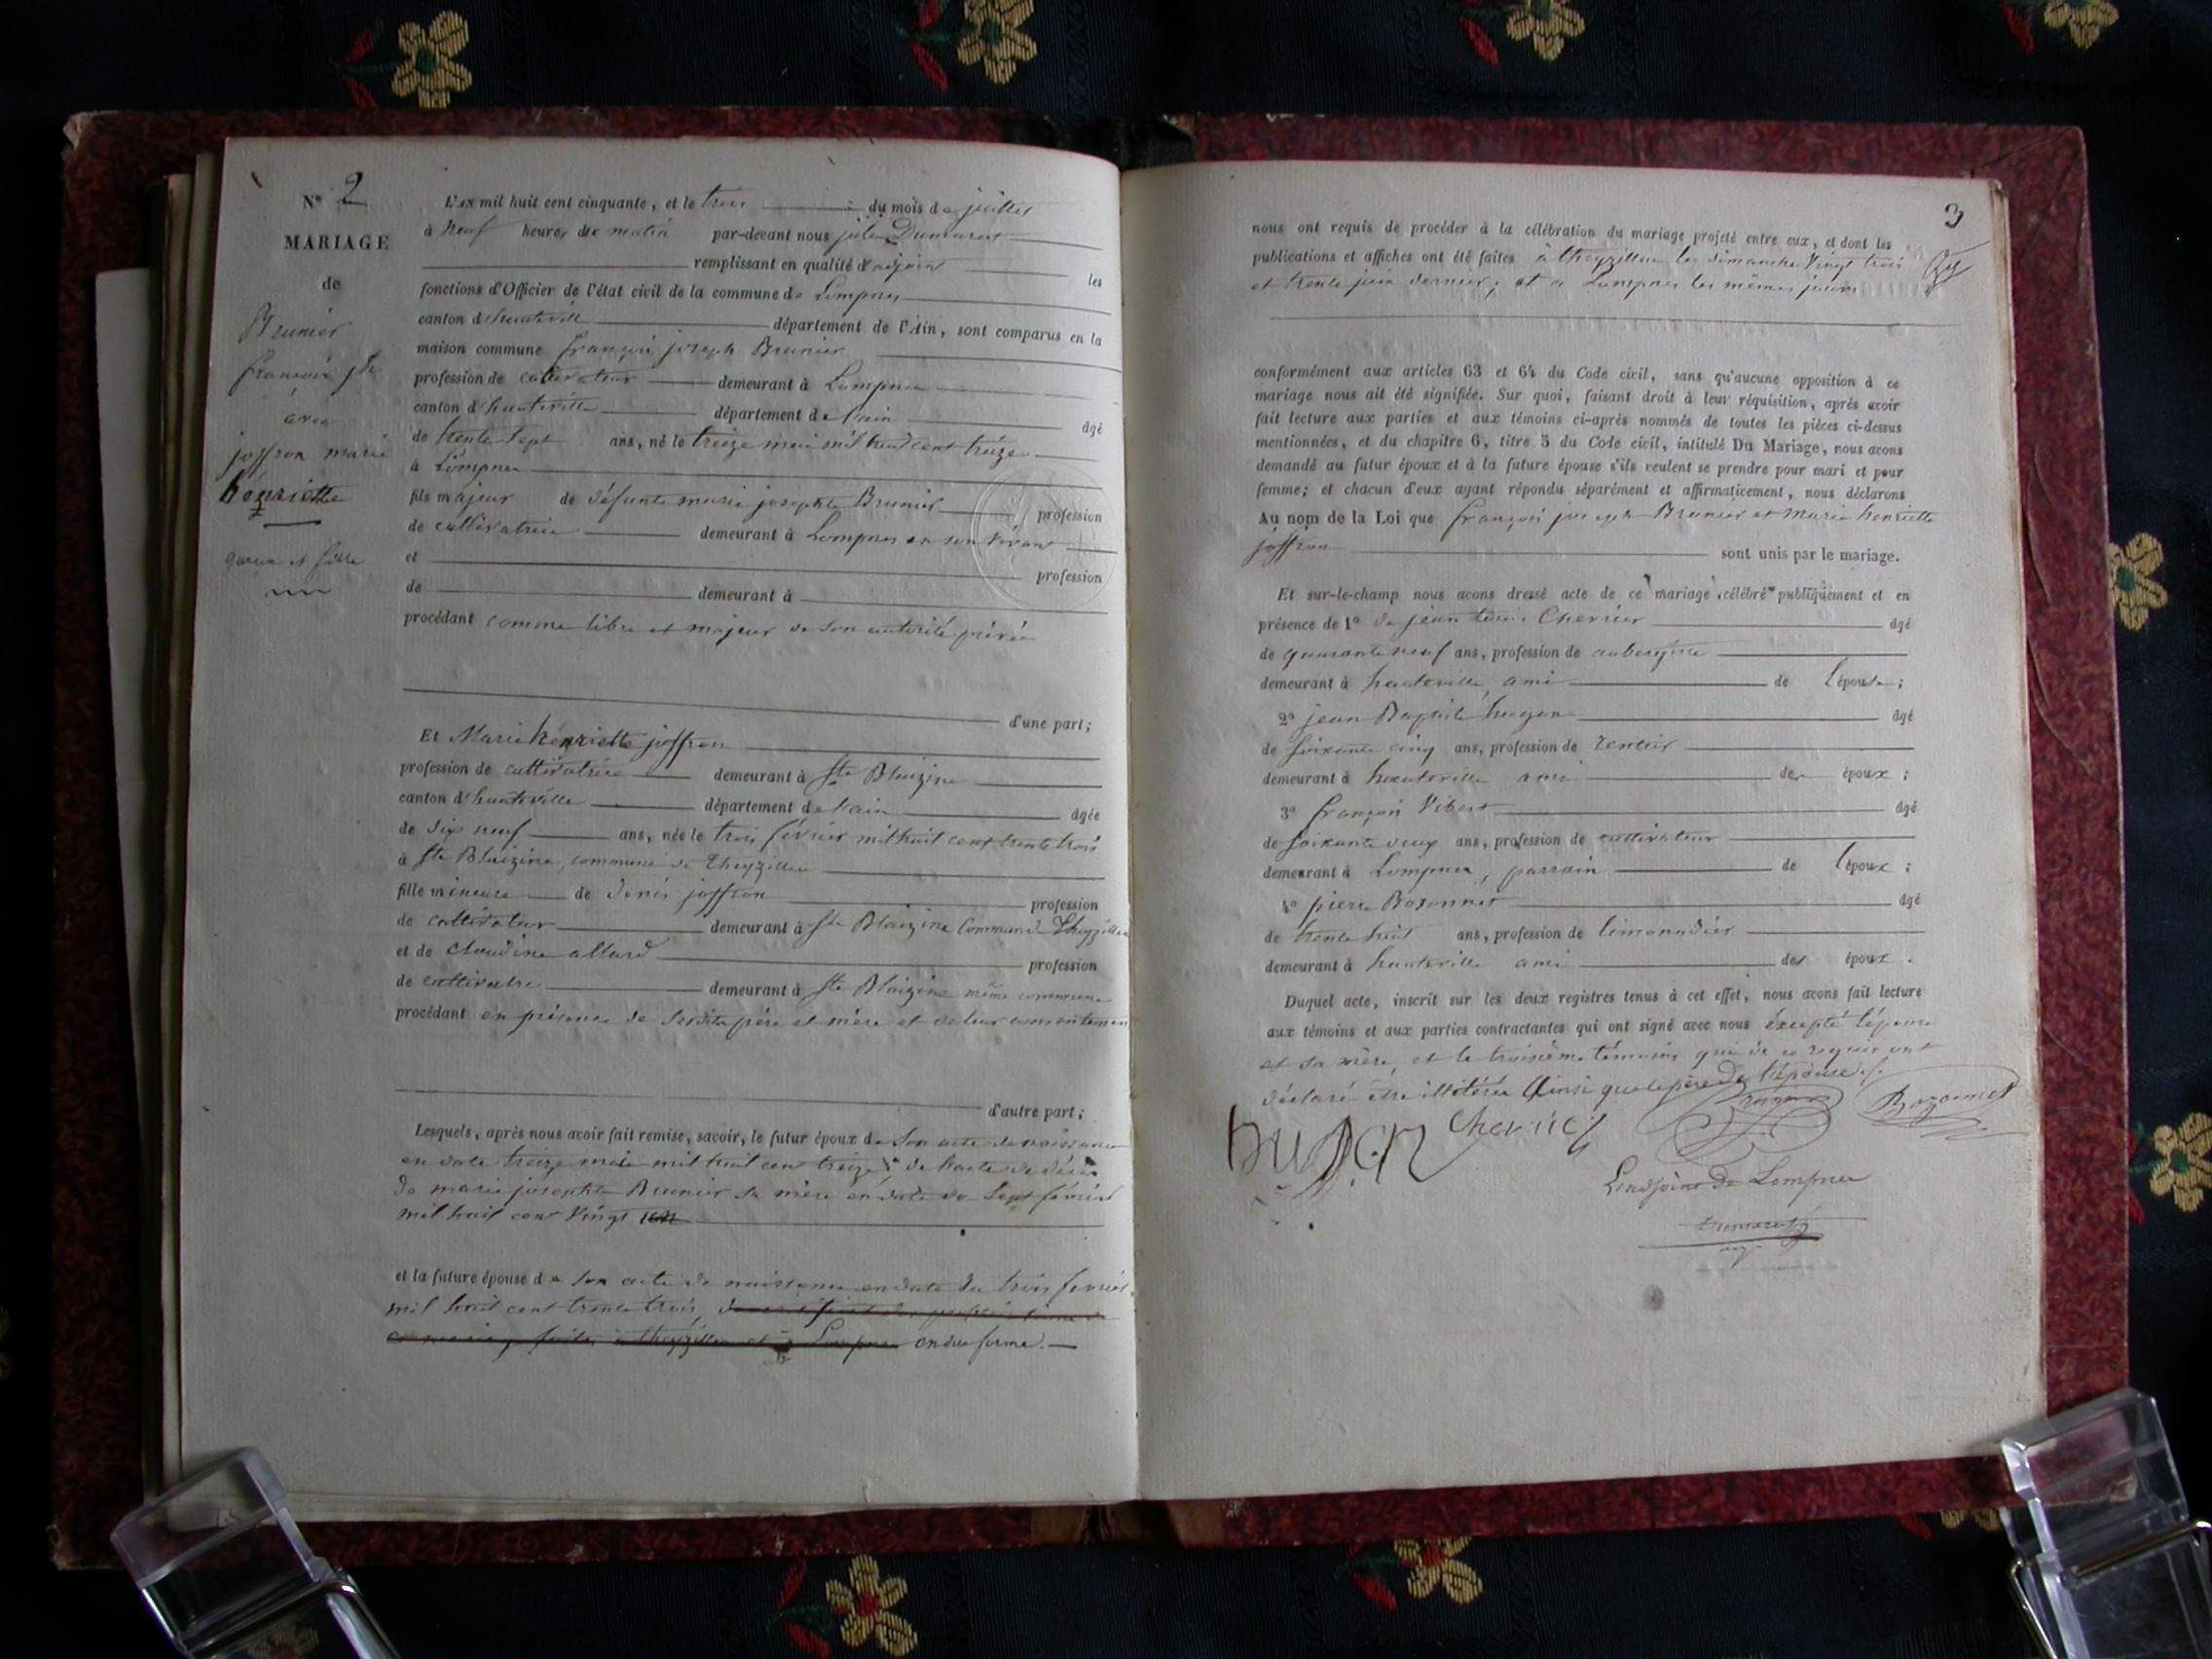 N° 2
MARIAGE
de
Brunier
françois jh
avec
joffron marie
henriette
garçon et fille
L'AN mil huit cent cinquante, et le trois du mois de juillet
à neuf heures du matin par-devant nous Dumarest
remplissant en qualité d'adjoint les
fonctions d'Officier de l'état civil de la commune de Lompnes
canton d'hauteville département de l'Ain, sont comparus en la
maison commune françois joseph Brunier
profession de cultivateur demeurant à Lompnes
canton d'hauteville département de l'ain âgé
de trente sept ans, né le treize mai mil huit cent treize
à Lompnes
fils majeur de défunte marie josephte Brunier profession
de cultivatrice demeurant à Lompnes en son vivant
et profession
de demeurant à
procédant comme libre et majeur de son autorité privée
d'une part;
Et Marie henriette joffron
profession de cultivatrice demeurant à Ste Blaizine
canton d'hauteville département de l'ain âgée
de dix neuf ans, née le trois février mil huit cent trente trois
à Ste Blaizine, commune de thezillieu
fille mineure de denis joffron profession
de cultivateur demeurant à Ste Blaizine commune de thezillieu
et de claudine allard profession
de cultivatrice demeurant à Ste Blaizine même commune
procédant en présence de père et mère et de leur consentement
d'autre part;
Lesquels, après nous avoir fait remise, savoir, le futur époux de son acte de naissance
en date treize mai mil huit cent treize, de l'acte de décès
de marie josephte Brunier sa mère en date du sept février
mil huit cent vingt
et la future épouse de son acte de naissance en date du trois février
mil huit cent trente trois,
en due forme.
3
nous ont requis de procéder à la célébration du mariage projeté entre eux, et dont les
publications et affiches ont été faites à thezillieu les dimanches vingt trois
et trente juin dernier, et à Lompnes les mêmes jours
conformément aux articles 63 et 64 du Code civil, sans qu'aucune opposition à ce
mariage nous ait été signifiée. Sur quoi, faisant droit à leur réquisition, après avoir
fait lecture aux parties et aux témoins ci-après nommés de toutes les pièces ci-dessus
mentionnées, et du chapitre 6, titre 5 du Code civil, intitulé Du Mariage, nous avons
demandé au futur époux et à la future épouse s'ils veulent se prendre pour mari et pour
femme; et chacun d'eux ayant répondu séparément et affirmativement, nous déclarons
Au nom de la Loi que françois joseph Brunier et marie henriette
joffron sont unis par le mariage.
Et sur-le-champ nous avons dressé acte de ce mariage célébré publiquement et en
présence de 1° de jean Chervier âgé
de quarante neuf ans, profession de aubergiste
demeurant à hauteville, ami de l'épouse;
2° jean Baptiste hugon âgé
de soixante cinq ans, profession de rentier
demeurant à hauteville ami des époux;
3° françois Vibert âgé
de soixante deux ans, profession de cultivateur
demeurant à Lompnes, parrain de l'époux;
4° pierre Bozonnet âgé
de trente huit ans, profession de limonadier
demeurant à hauteville ami des époux.
Duquel acte, inscrit sur les deux registres tenus à cet effet, nous avons fait lecture
aux témoins et aux parties contractantes qui ont signé avec nous excepté l'épouse
et sa mère, et le troisième témoins qui de ce requis ont
déclaré être illitérés Ainsi que le père de l'épouse
Chervier Bozonnet
L'adjoint de Lompnes
Dumarest